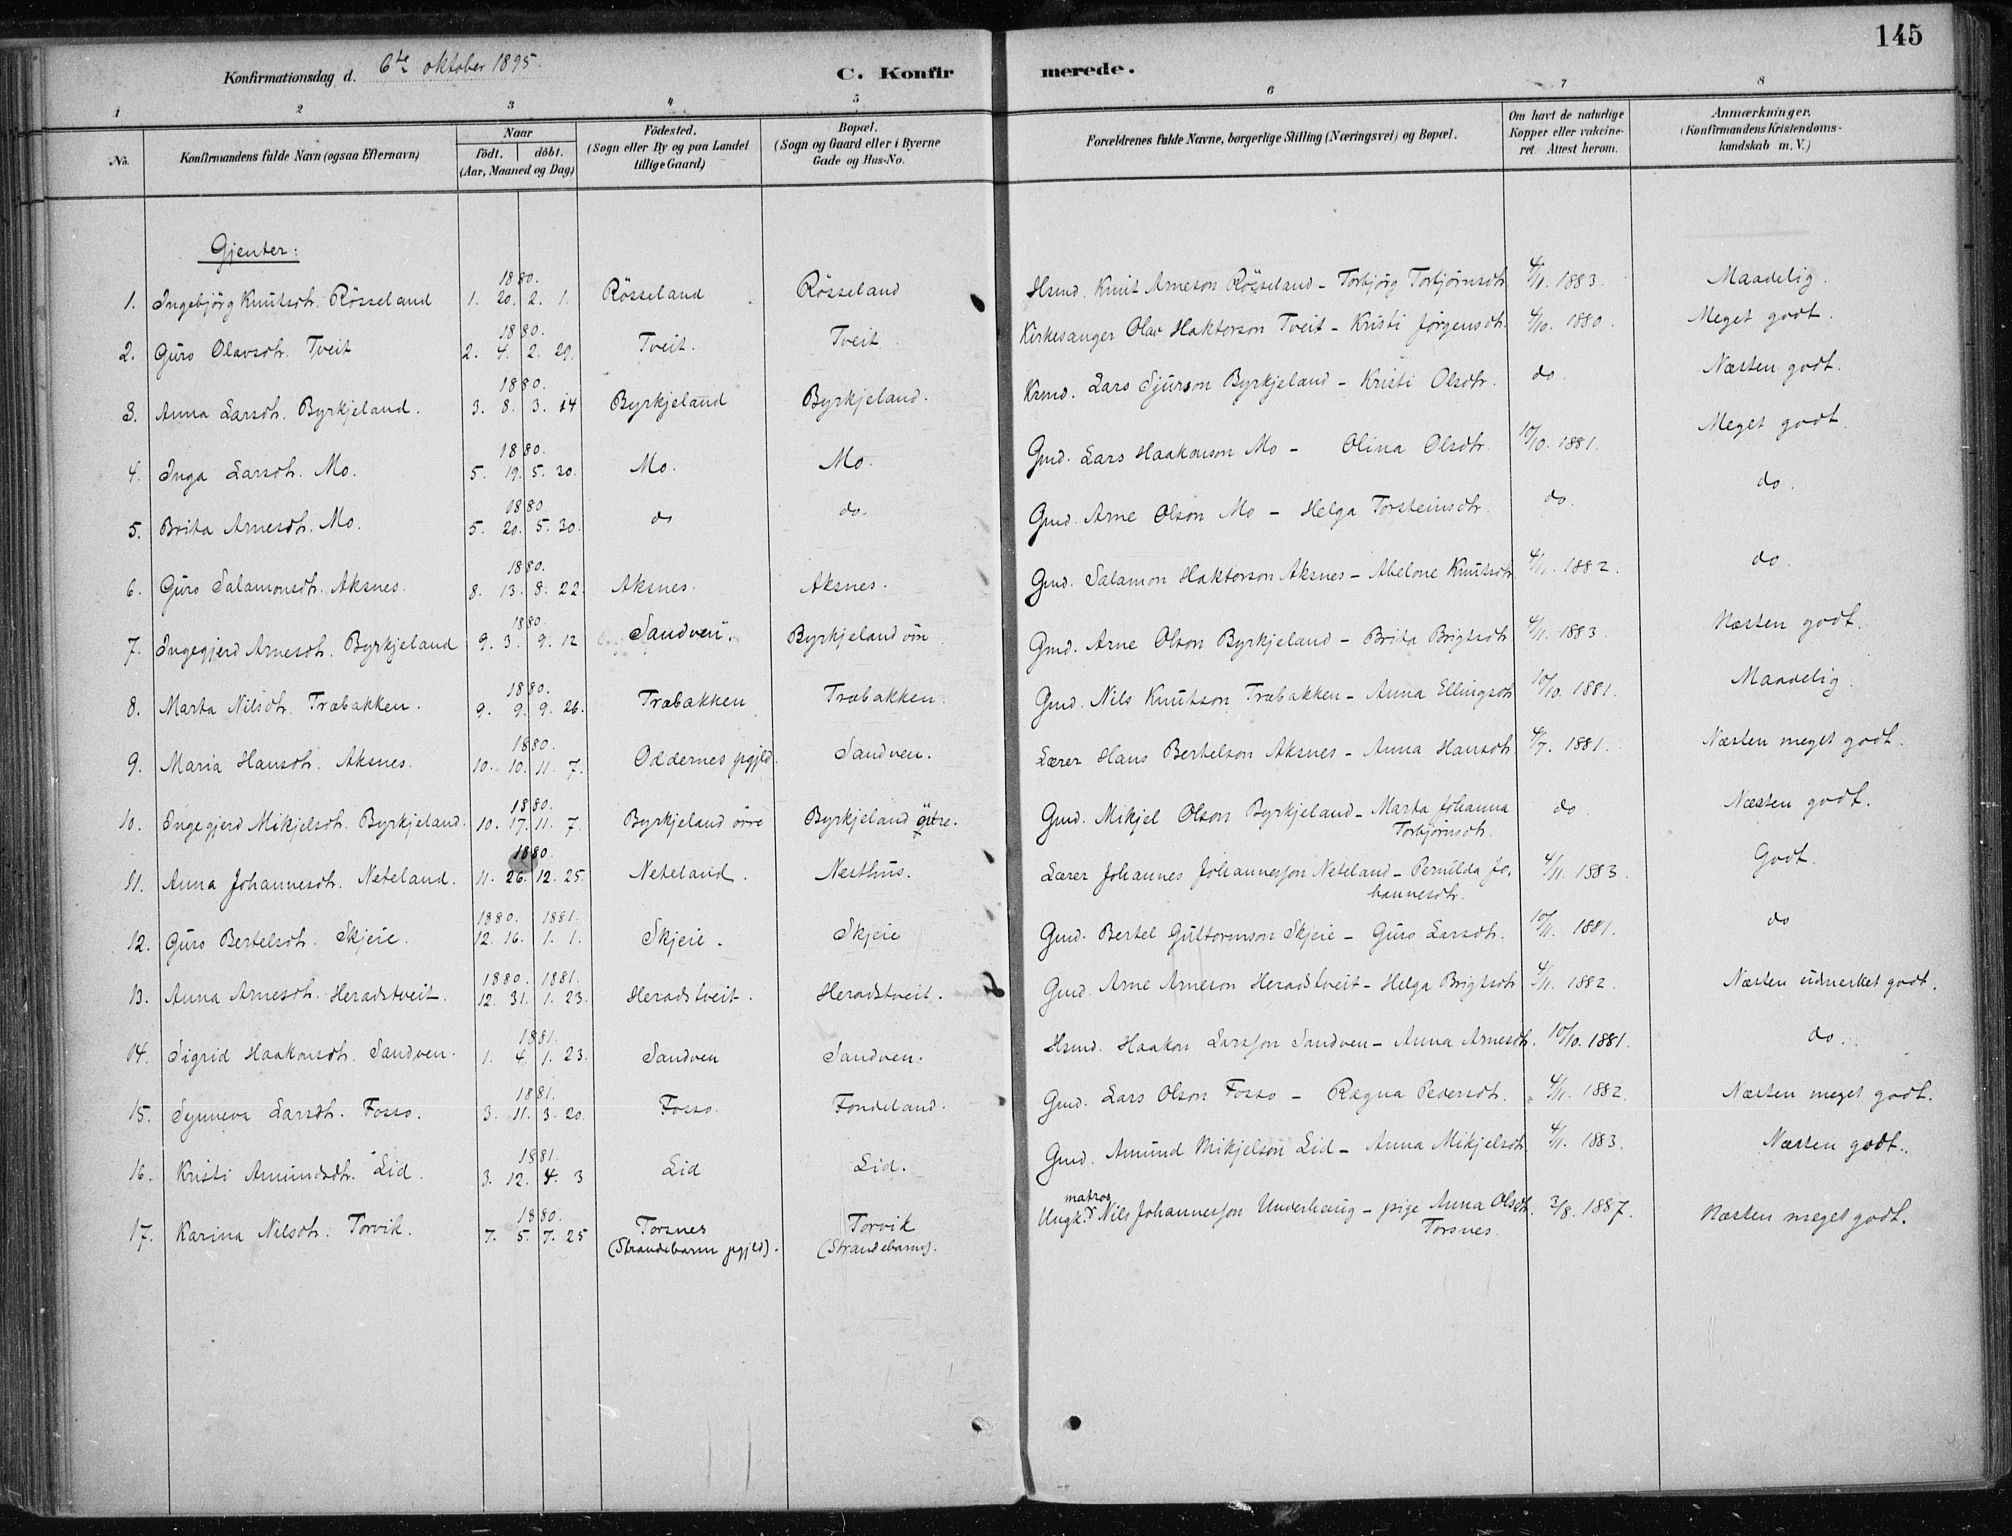 145
Konfirmationsdag d. 6te oktober 1895.
C. Konfirmerede.
1 2 3 4 5 6 7 8
No.
Konfirmandens fulde Navn (ogsaa Efternavn)
Naar
födt. döbt.
(Aar, Maaned og Dag)
Födested.
(Sogn eller By og paa Landet
tillige Gaard)
Bopæl.
(Sogn og Gaard eller i Byerne
Gade og Hus-No.
Forældrenes fulde Navne, borgerlige Stilling (Næringsvei) og Bopæl.
Om havt de naturlige
Kopper eller vakcineret
Attest herom.
Anmærkninger.
(Konfirmandens Kristendomskundskab
m. V.)
Gjenter:
1. Ingebjörg Knutsdtr. Rösseland 1880. 1. 20. 2. 1. Rösseland Rösseland Hsmd. Knut Arneson Rösseland - Torbjörg Torbjörnsdtr. 4/11. 1883. Maadelig.
2. Guro Olavsdtr. Tveit 1880. 2. 4. 2. 29. Tveit. Tveit Kirkesanger Olav Haktorson Tveit - Kristi Jørgensdtr. 4/10. 1880. Meget godt.
3. Anna Larsdtr. Byrkjeland. 1880. 3. 8. 3. 14 Byrkjeland Byrkjeland. Krmd. Lars Sjurson Byrkjeland - Kristi Olsdtr. do. Næsten godt.
4. Inga Larsdtr. Mo. 1880. 5. 19. 5. 30. Mo. Mo. Gmd. Lars Haakonson Mo - Olina Olsdtr. 10/10. 1881. Meget godt.
5. Brita Arnesdtr. Mo. 1880 5. 20. 5. 30. do do. Gmd. Arne Olson Mo - Helga Torsteinsdtr. do. do.
6. Guro Salamonsdtr. Aksnes. 1880. 8. 13. 8. 22. Aksnes. Aksnes. Gmd. Salamon Haktorson Aksnes - Abelone Knutsdtr 4/11. 1882. do.
7. Ingegjerd Arnesdtr. Byrkjeland 1880. 9. 3. 9. 12 Sandven. Byrkjeland Gmd. Arne Olson Byrkjeland - Brita Brigtsdtr. 4/11. 1883. Næsten godt.
8. Marta Nilsdtr. Træbakken. 1880. 9. 9. 9. 26. Træbakken Træbakken. Gmd. Nils Knutson Træbakken - Anna Ellingsdtr 10/10. 1881. Maadelig.
9. Maria Hansdtr. Aksnes. 1880. 10. 10. 11. 7. Oddernes pgjld. Sandven. Lærer Hans Bertelson Aksnes - Anna Hansdtr 4/7. 1881. Næsten meget godt.
10. Ingegjerd Mikjelsdtr. Byrkjeland. 1880. 10. 17. 11. 7. Byrkjeland övre Byrkjeland övre. Gmd. Mikjel Olson Byrkjeland - Marta Johanna
Torbjörnsdtr. do Næsten godt.
11. Anna Johannesdtr. Neteland. 1880. 11. 26. 12. 25. Neteland. Nesthus. Lærer Johannes Johannesson Neteland - Pernilda Johannesdtr. 4/11. 1883. Godt.
12. Guro Bertelsdtr. Skjeie. 1880. 1881. 12. 16. 1. 1. Skjeie. Skjeie Gmd. Bertel Guttormson Skjeie - Guro Larsdtr. 10/11. 1881. do
13. Anna Arnesdtr. Heradstveit. 1880. 1881. 12. 31. 1. 23. Heradstveit. Heradstveit. Gmd. Arne Arneson Heradstveit - Helga Brigtsdtr 4/11. 1882. Næsten udmerket godt.
14. Sigrid Haakonsdtr. Sandven. 1881. 1. 4. 1. 23. Sandven Sandven. Hsmd. Haakon Larsson Sandven - Anna Arnesdtr. 10/10. 1881. do.
15. Synneva Larsdtr. Fosso. 1881. 3. 11. 3. 20. Fosso. Fondeland. Gmd. Lars Olson Fosso - Ragna Pedersdtr. 4/11. 1882. Næsten meget godt.
16. Kristi Amundsdtr. Lid. 1881. 3. 12. 4. 3 Lid Lid. Gmd. Amund Mikjelson Lid - Anna Mikjelsdtr 4/11. 1883. Næsten godt.
17. Karina Nilsdtr. Torvik. 1880. 7. 5. 7. 25 Torsnes
(Strandebarm pgjld). Torvik
(Strandebarm). Ungk. matros Nils Johannesson Underhaug - pige Anna Olsdtr.
Torsnes. 3/8. 1887. Næsten meget godt.